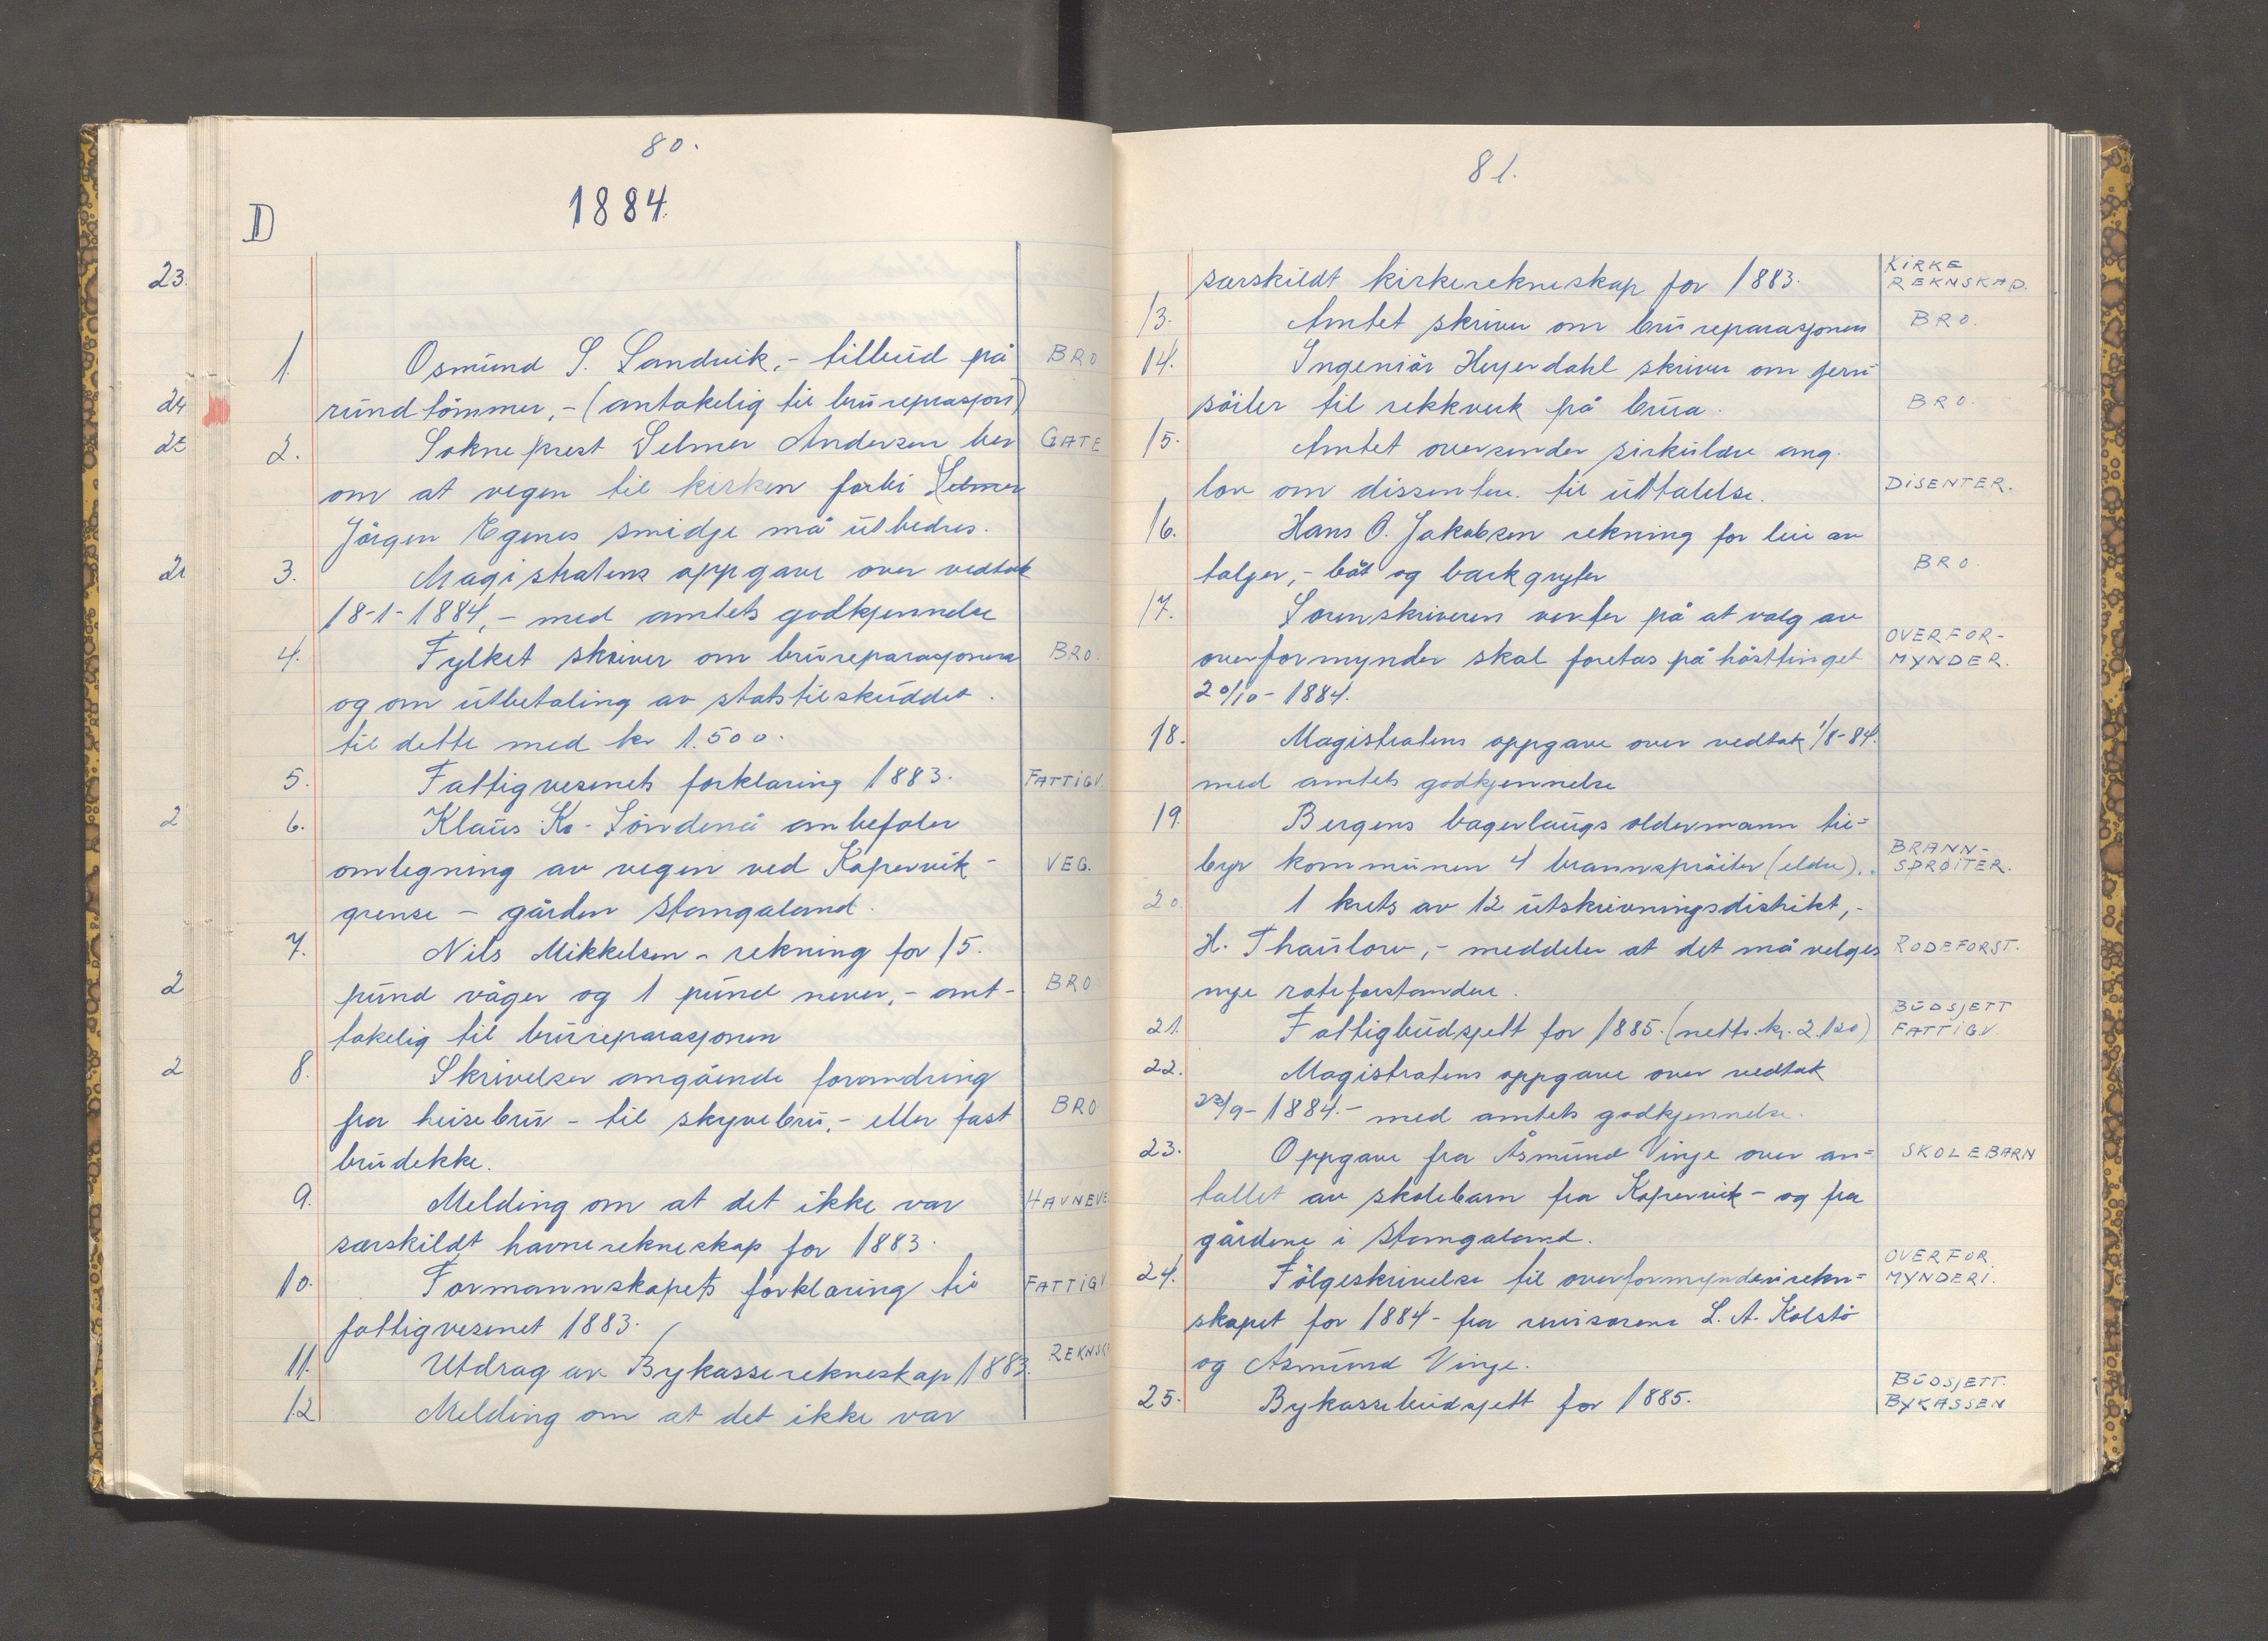 80.
D
1884.
23.
1 Osmund S. Sandvik, - tilbud på BRO
rundtömmer, - (antakelig til brureprasjon)
24
25
2. Sokneprest Selmer Andersen ber GATE
om at vegen til kirken forbi Selmer
Jörgen Egenes smidje må utbedres.
2
3. Magistratens oppgave over vedtak
18-1-1884, - med amtets godkjennelse
4. Fylket skriver om brureparasjonen BRO.
og om utbetaling av statstilskuddet.
til dette med kr 1.500.
5. Fattigvesenets forklaring 1883. FATTIGV.
2
6. Klaus Kr. Söndenå anbefaler
omlegning av vegen ved Kopervik- VEG.
grense - gården Stangaland.
7. Nils Mikkelsen - rekning for 15.
2
pund våger og 1 pund never, - ant- BRO
takelig til brureparasjonen
2
8. Skrivelser angående forandring
fra heisebru - til skyvebru, - eller fast BRO
brudekke.
9. Melding om at det ikke var HAVNEVE
særskildt havnerekneskap for 1883.
10. Formannskapets forklaring til FATTIGV
fattigvesenet 1883.
11. Utdrag av Bykasserekneskap 1883. REKNSK
12 Melding om at det ikke var
81.
særskildt kirkerekneskap for 1883. KIRKE
REKNSKAP.
13. Amtet skriver om brureparasjonen BRO.
14. Ingeniör Heyerdahl skriver om jern-
söiler til rekkverk på brua. BRO.
15. Amtet oversender sirkulære ang.
lov om dissentere. til uttalelse. DISENTER.
16. Hans O. Jakobsen rekning for leie av
taljer, - båt og barkgryter BRO.
17. Sorenskriveren verfer på at valg av
overformynder skal foretas på hösttinget OVERFOR-
MYNDER.
20/10 - 1884.
18. Magistratens oppgave over vedtak 1/8-84.
med amtets godkjennelse
19. Bergens bagerlaugs oldermann til=
byr kommunen 4 brannspröiter (eldre). BRANN-
SPRÖITER.
20. 1 krets av 12 utskrivningsdistrikt, -
H. Thaulow, - meddeler at det må velges RODEFORST.
nye roteforstandere.
21. Fattigbudsjett for 1885. (netto. kr. 2.120) BUDSJETT
FATTIGV.
22. Magistratens oppgave over vedtak
23/9 - 1884. - med amtets godkjennelse.
23. Oppgave fra Åsmund Vinje over an= SKOLEBARN
tallet av skolebarn fra Kopervik - og fra
gårdene i Stangaland.
24. Fölgeskrivelse til overformynderirekn= OVERFOR.
MYNDERI.
skapet for 1884 - fra revisorene L. A. Kolstö
og Asmund Vinje.
25. Bykassebudsjett for 1885. BUDSJETT.
BYKASSEN